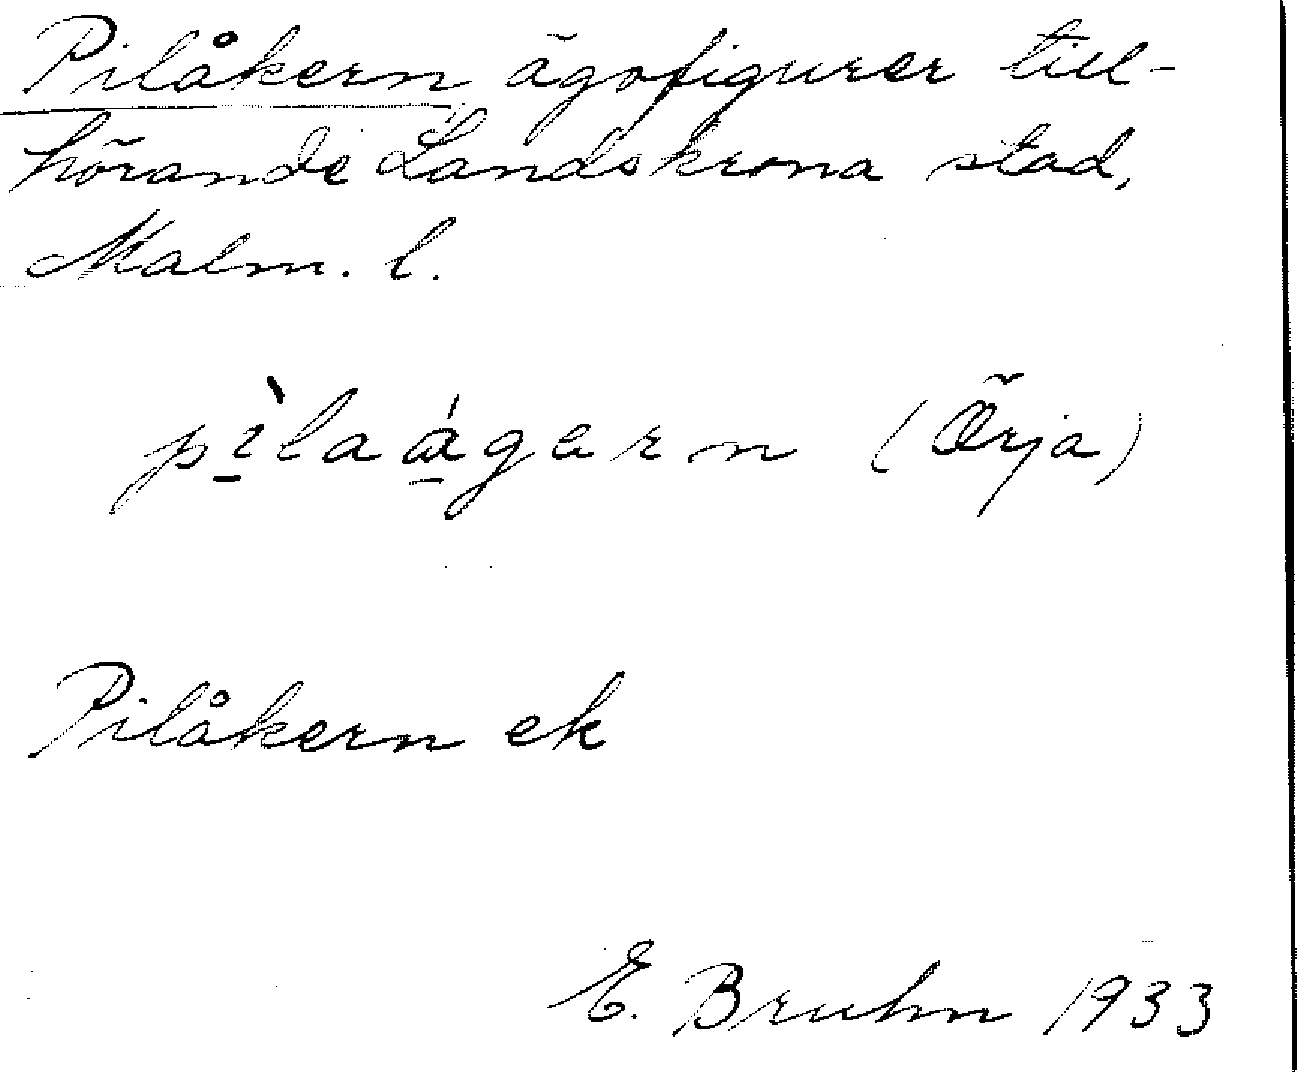 Pilåkern ägofigurer till-
hörande Landskrona stad,
Malm. l.
pìlaágarn (Örja)
Pilåkern ek
E. Bruhn 1933